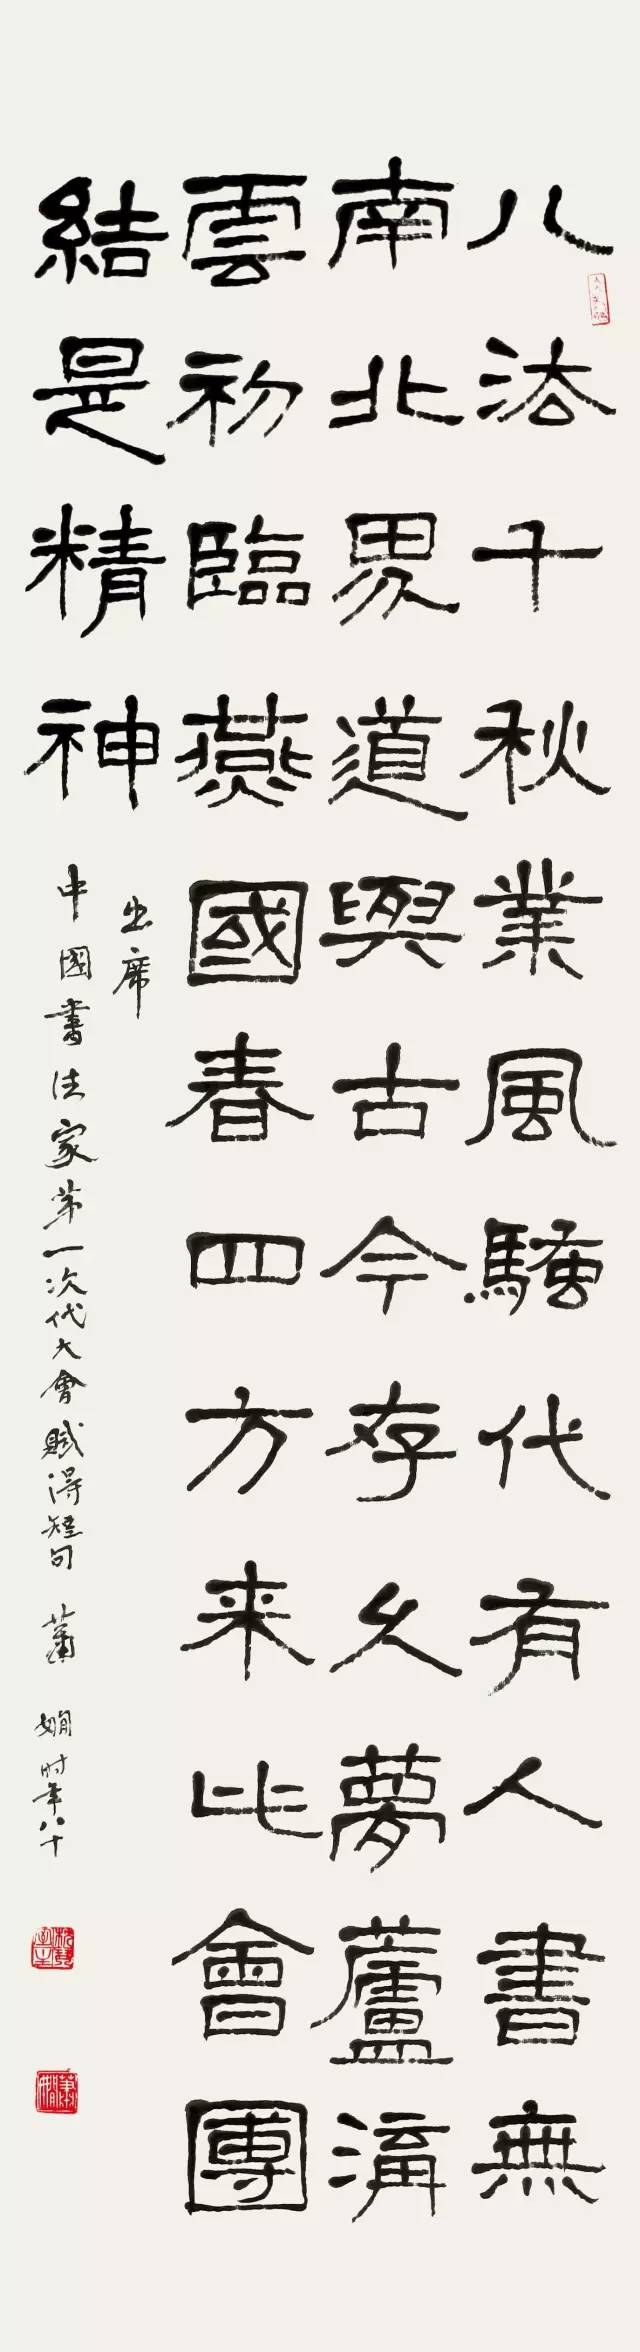 八法千秋業風騷代有人書無
南北界道與古今存久夢蘆溝
雲初臨燕國春四方来比會團
結是精神
出席
中國書法家第一次代大會賦得短句 蕭
嫻时年八十
蕭嫻